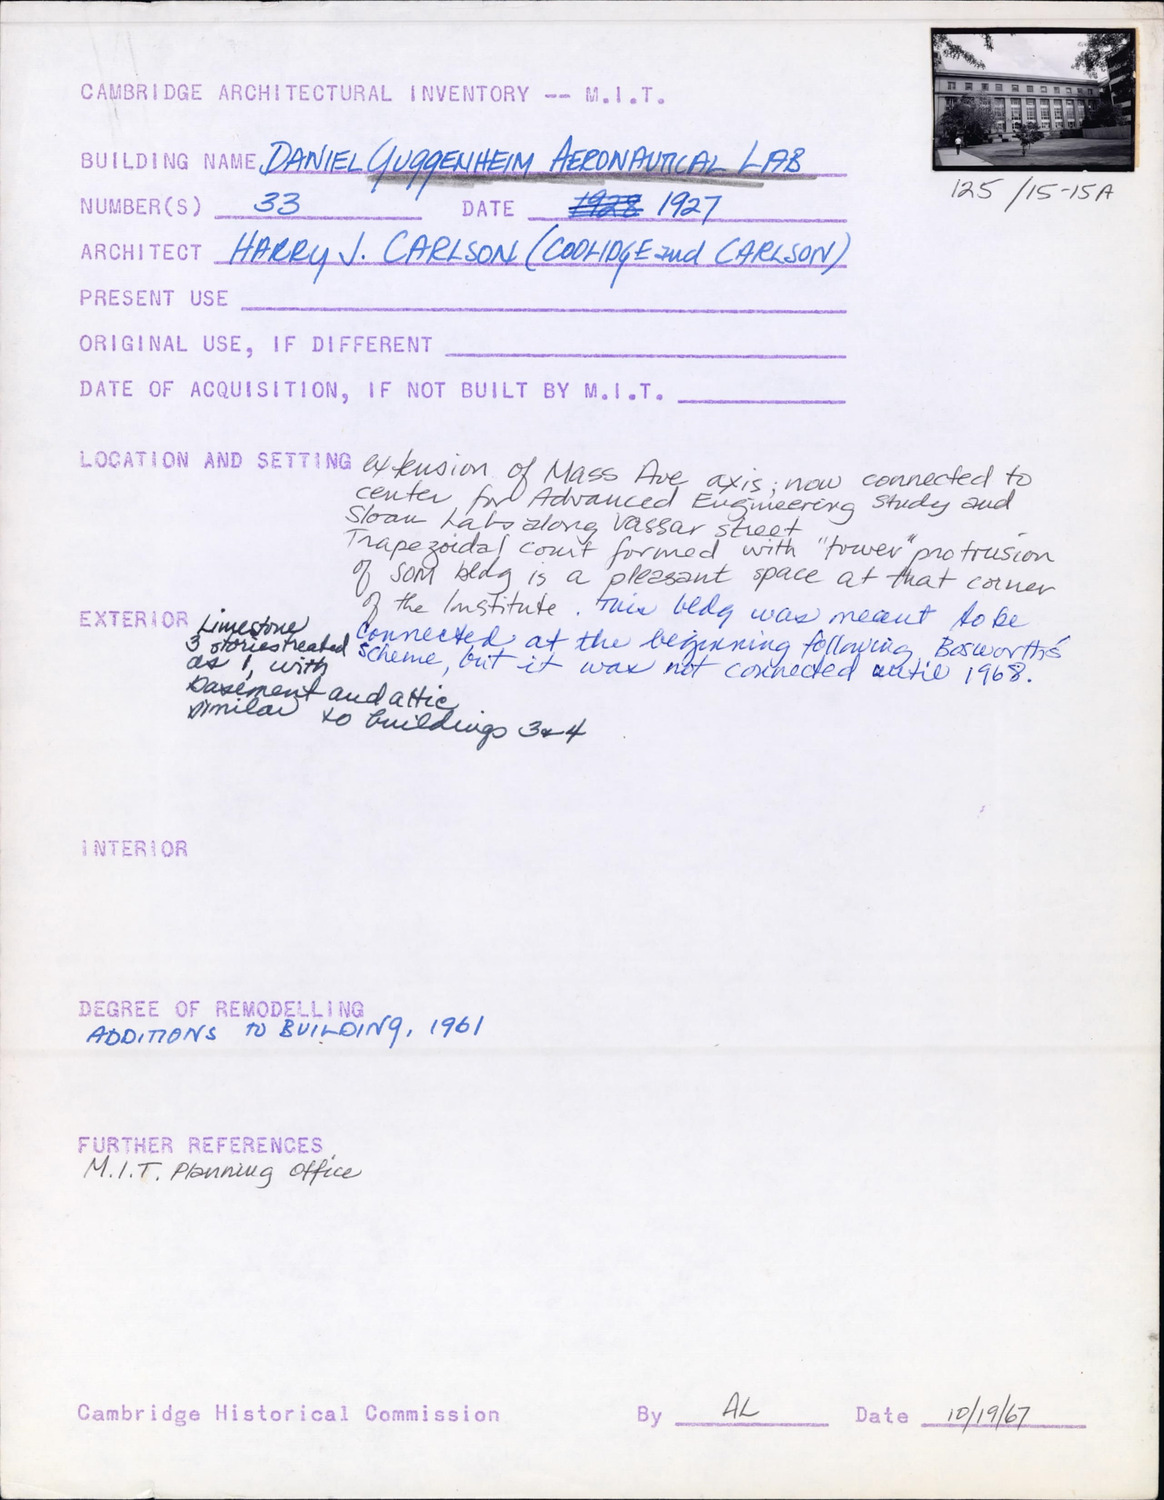 CAMBRIDGE ARCHITECTURAL INVENTORY -- M.I.T.
125 /15-15A
BUILDING NAME DANIEL GUGGENHEIM AERONAUTICAL LAB
NUMBER(S) 33 DATE 1928 1927
ARCHITECT HARRY J. CARLSON (COOLIDGE and CARLSON)
PRESENT USE
ORIGINAL USE, IF DIFFERENT
DATE OF ACQUISITION, IF NOT BUILT BY M.I.T.
LOCATION AND SETTING extension of Mass Ave axis; now connected to
center for Advanced Engineering Study and
Sloan Labs along Vassar street
Trapezoidal court formed with "tower" protrusion
of SOM bldg is a pleasant space at that corner
of the Institute. This bldg was meant to be
connected at the beginning following Bosworth's
scheme, but it was not connected until 1968.
EXTERIOR Limestone
3 stories treated
as 1, with
basement and attic
similar to buildings 3 & 4
INTERIOR
DEGREE OF REMODELLING
ADDITIONS TO BUILDING, 1961
FURTHER REFERENCES
M.I.T. Planning Office
Cambridge Historical Commission By AL Date 10/19/67